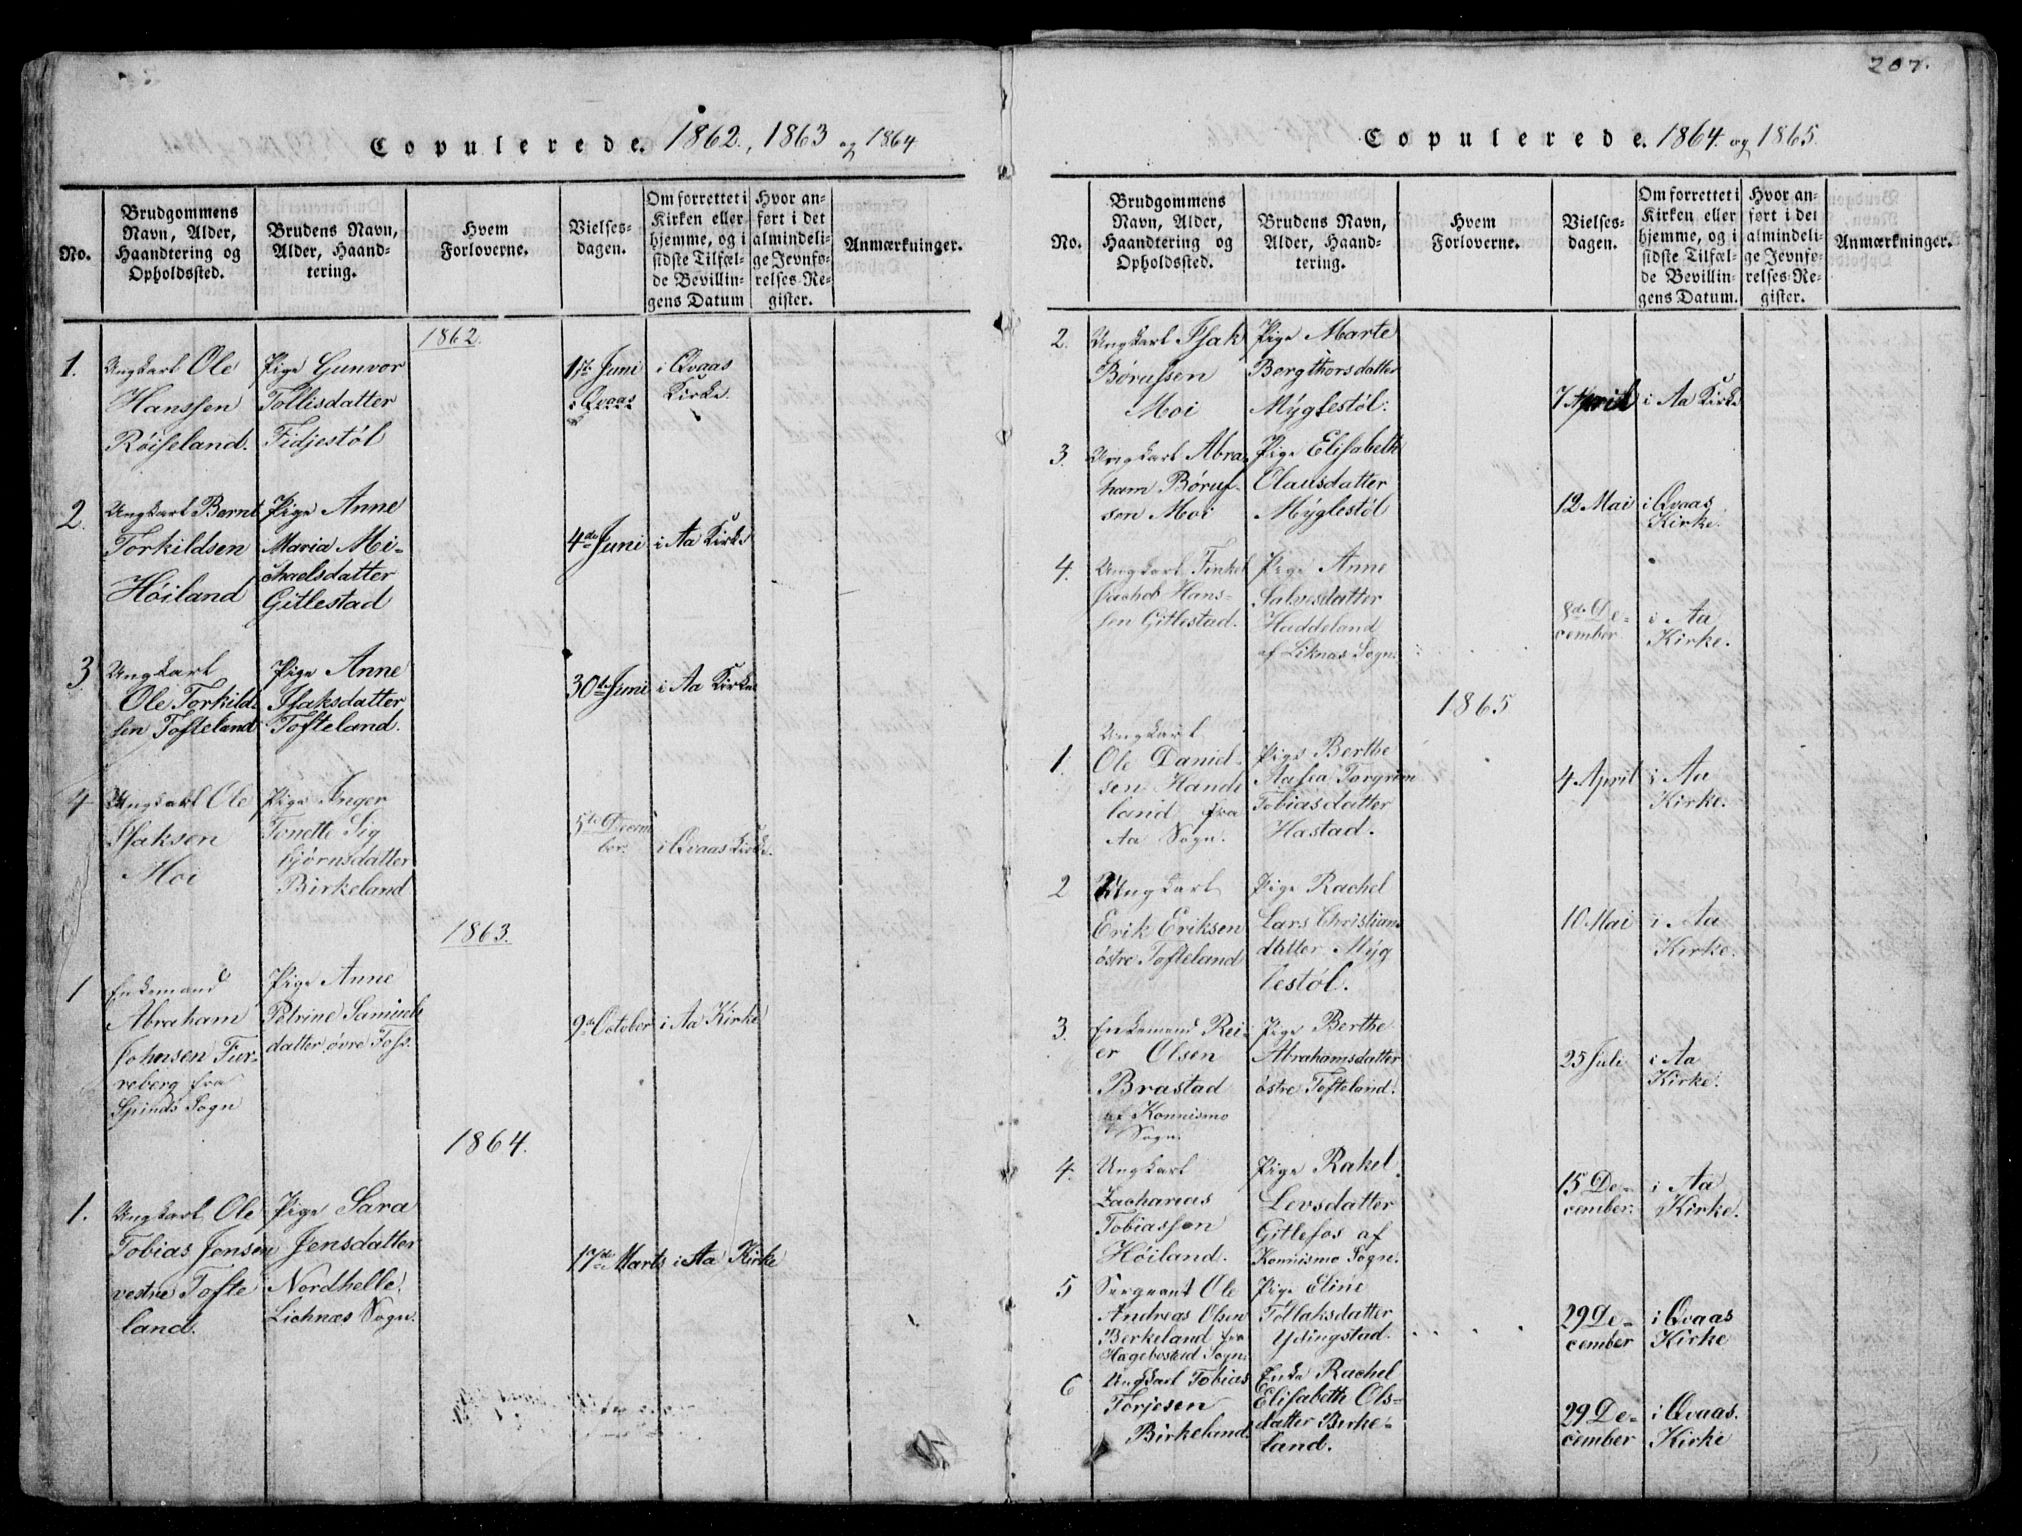 Copulerede. 1862., 1863 og 1864
No.
Brudgommens
Navn, Alder,
Haandtering og
Opholdssted.
Brudens Navn,
Alder, Haand-
tering.
Hvem
Forloverne.
Vielses-
dagen.
Om forrettet i
Kirken eller
hjemme, og i
sidste Tilfæl-
de Bevillin-
gens Datum
Hvor an-
ført i det
almindeli-
ge Jevnfø-
relses-Re-
gister.
Anmærkninger.
1862.
1.
Ungkarl Ole
Hanssen
Røiseland.
Pige Gunvor
Tollisdatter
Fidjestøl
1ste Juni
i Qvaas
i Qvaas
Kirke.
2.
Ungkarl Bernt
Torkildsen
Høiland
Pige Anne
Maria Mi-
chaelsdatter
Gitlestad
4de Juni
i Aa Kirke
3.
Ungkarl
Ole Torkild-
sen Tofteland
Pige Anne
Isaksdatter
Tofteland.
30de Juni
i Aa Kirke
4
Ungkarl Ole
Isaksen
Moi
Pige Inger
Tonette Sig
bjørnsdatter
Birkeland
5te Decem
ber.
i Qvaas Kirke.
1863.
1
Enkemand
Abraham
Johnsen Fur-
reberg fra
Spinds Sogn
Pige Anne
Petrine Samuels
datter øvre Foss.
9de October
i Aa Kirke
1864.
1.
Ungkarl Ole
Tobias Jensen
vestre Tofte
land.
Pige Sara
Jensdatter
Nordhelle
Lichnæs Sogn.
17de Marts
i Aa Kirke
207.
Copulerede. 1864. og 1865.
No.
Brudgommens
Navn, Alder,
Haandtering og
Opholdssted.
Brudens Navn,
Alder, Haand-
tering.
Hvem
Forloverne.
Vielses-
dagen.
Om forrettet i
Kirken eller
hjemme, og i
sidste Tilfæl-
de Bevillin-
gens Datum.
Hvor an-
ført i det
almindeli-
ge Jevnfø-
relses-Re-
gister.
Anmærkninger.
2.
Ungkarl Isak
Børufsen
Moi
Pige Marte
Bergthorsdatter
Myglestøl.
7 April
i Aa Kirke
3.
Ungkarl Abra-
ham Børuf-
sen Moi
Pige Elisabeth
Olausdatter
Myglestøl
12 Mai
i Qvaas
Kirke.
4.
Ungkarl Tinkel
Jachob Hans-
sen Gitlestad.
Pige Anne
Salvesdatter
Haddeland
af Liknas Sogn.
8de De-
cember
i Aa
Kirke.
1865
1.
Ungkarl
Ole Daniel-
sen Hande
land fra
Aa Sogn.
Pige Berthe
Aasea Torgrim
Tobiasdatter
Hastad.
4 April
i Aa
Kirke.
2
Ungkarl
Erik Eriksen
østre Tofteland
Pige Rachel
Lars Christian-
datter Myg
lestøl.
10 Mai
i Aa
Kirke.
3.
Enkemand Rei-
er Olsen
Brastad
af Konnismo
Sogn.
Pige Berthe
Abrahamsdatter
østre Tofteland.
25 Juli
i Aa
Kirke.
4.
Ungkarl
Zacharias
Tobiassen
Høiland.
Pige Rakel
Levsdatter
Gitlefos af
Konnismo Sogn.
15 De-
cember.
i Aa
Kirke.
5
Sergeant Ole
Andreas Olsen
Berkeland fra
Hagebosted Sogn.
Pige Eline
Tollaksdatter
Ydingstad.
29 De-
cember
i Qvaas
Kirke
6
Ungkarl Tobias
Torjesen
Birkeland.
Enke Rachel
Elisabeth Ols-
datter Birke-
land.
29 De-
cember
i Qvaas.
Kirke